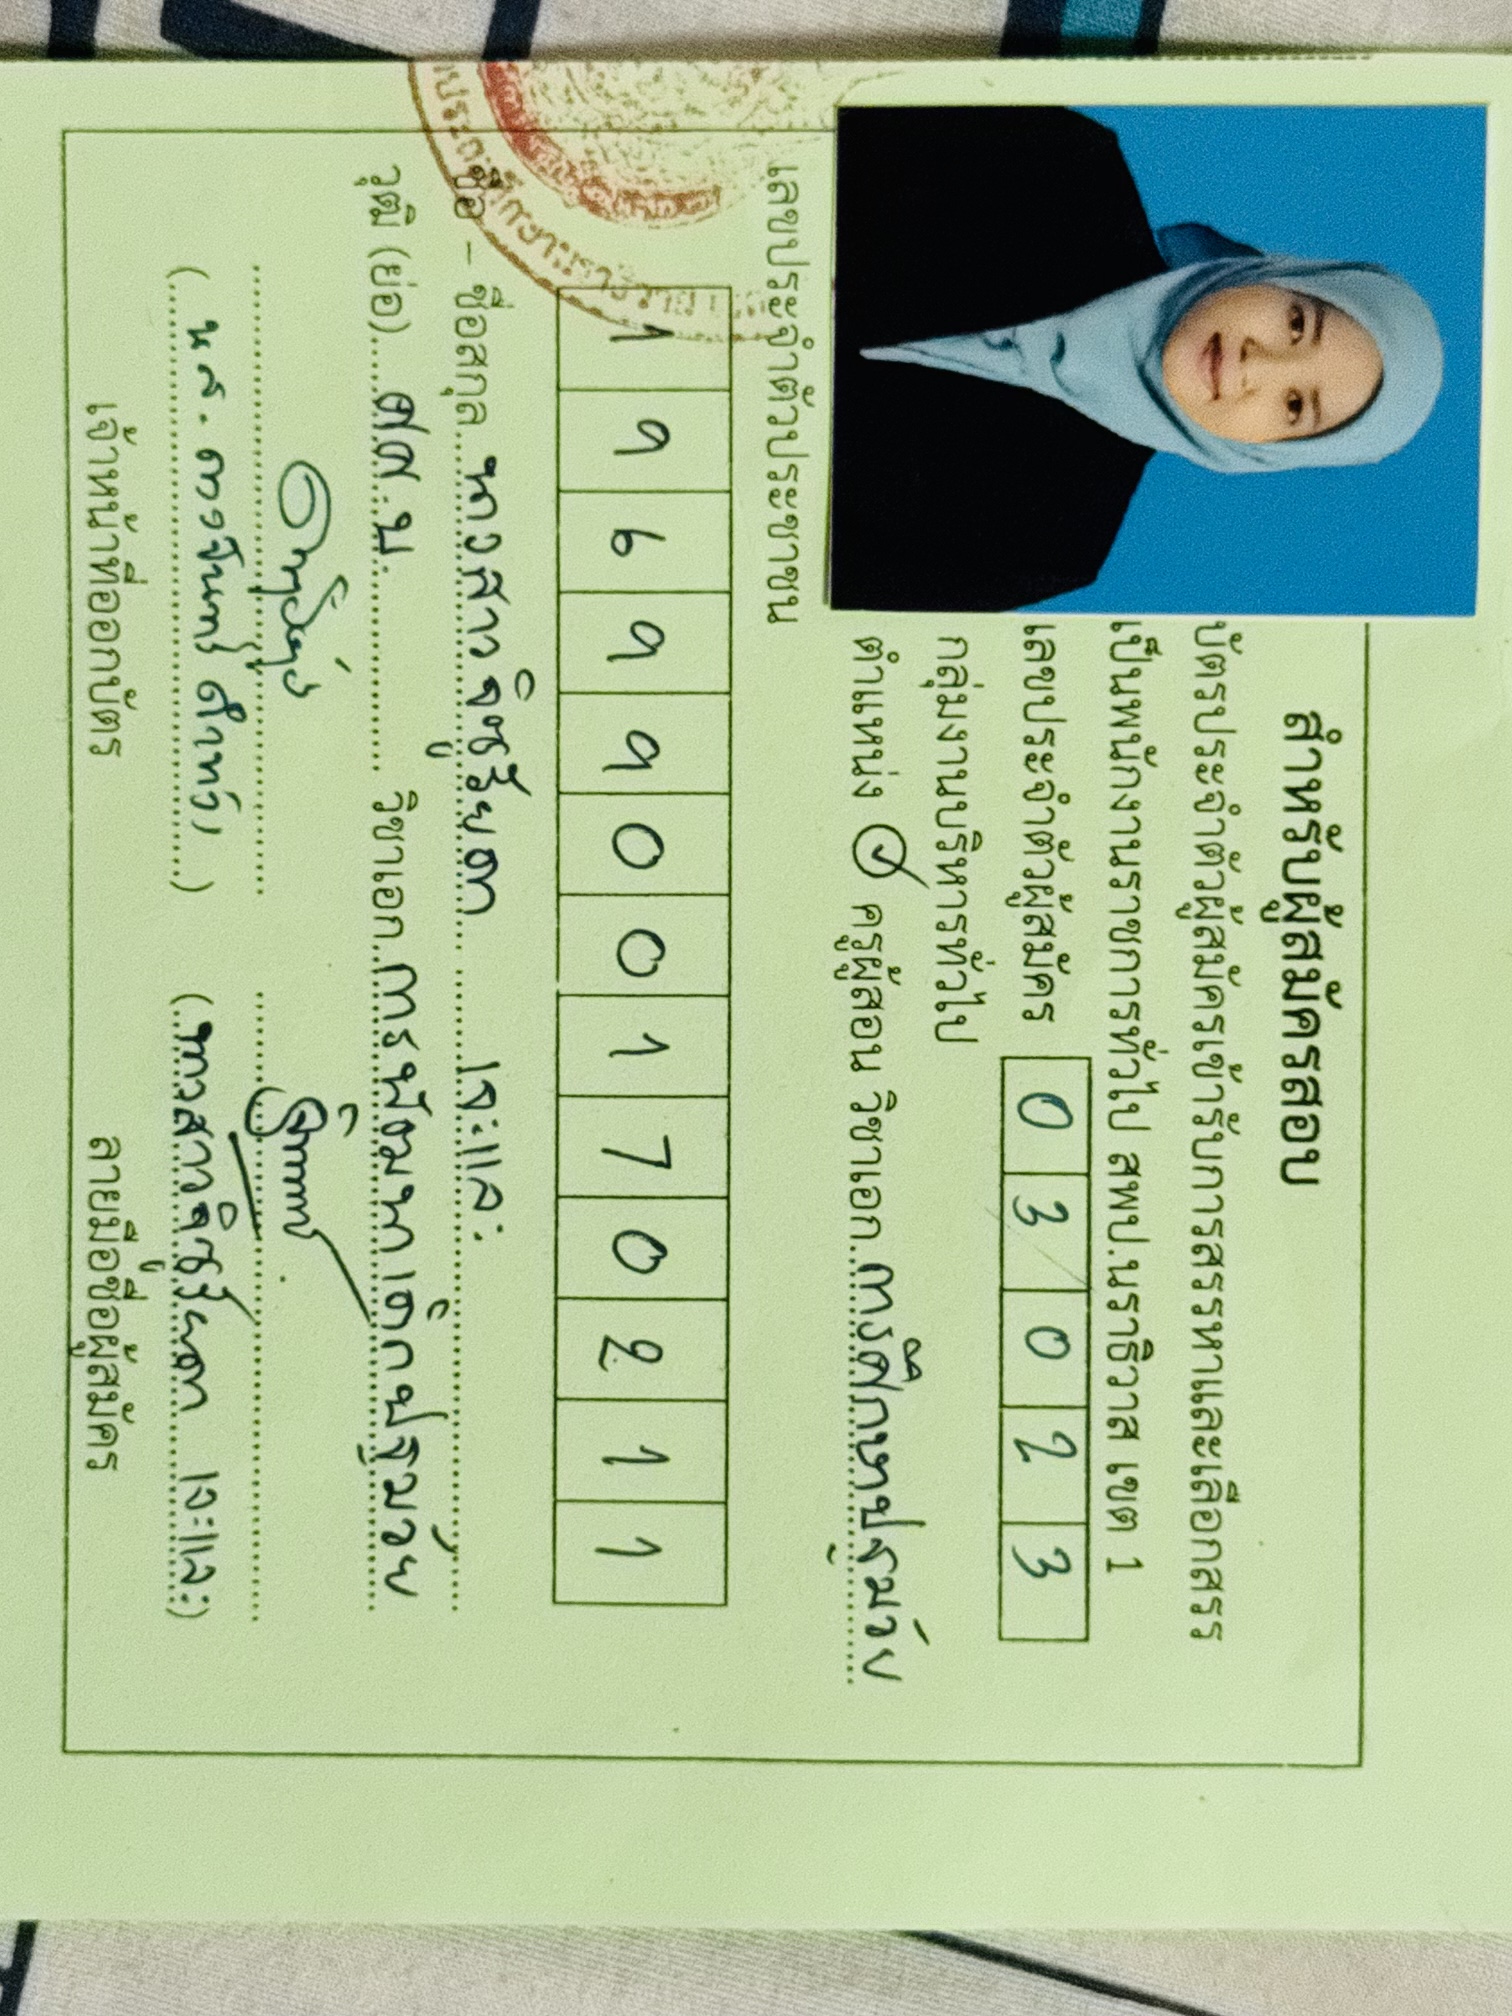 สำหรับผู้สมัครสอบ
บัตรประจำตัวผู้สมัครเข้ารับการสรรหาและเลือกสรร
เป็นพนักงานราชการทั่วไป สพป.นราธิวาส เขต 1
เลขประจำตัวผู้สมัคร 0 3 0 2 3
กลุ่มงานบริหารทั่วไป
ตำแหน่ง ครูผู้สอน วิชาเอก การศึกษาปฐมวัย
เลขประจำตัวประชาชน
1 9 6 9 9 0 0 1 7 0 2 1 1
ชื่อ – ชื่อสกุล นางสาว เจะและ
วุฒิ (ย่อ) ศศ.บ. วิชาเอก การพัฒนาเด็กปฐมวัย
(น.ส.) (นางสาว เจะและ)
เจ้าหน้าที่ออกบัตร ลายมือชื่อผู้สมัคร